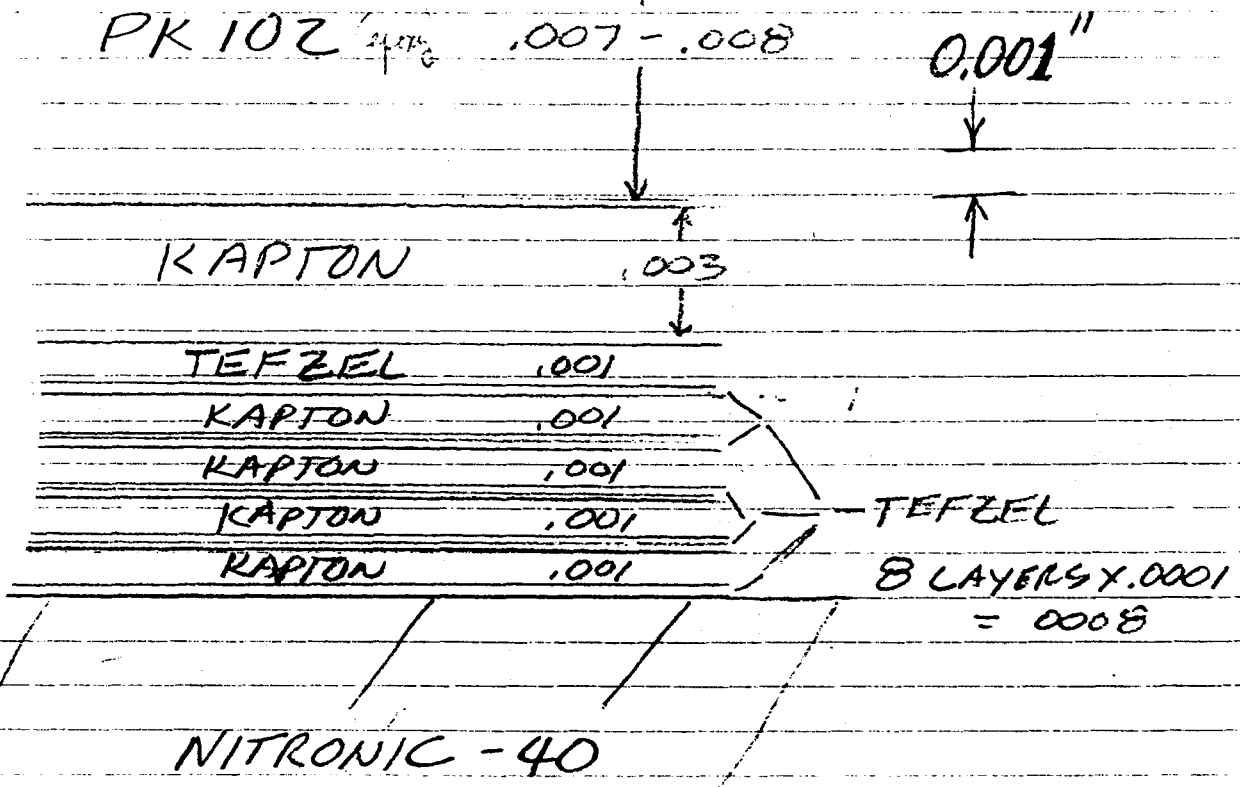 PK 102 .007 - .008
0.001"
KAPTON .003
TEFZEL .001
KAPTON .001
KAPTON .001
KAPTON .001
KAPTON .001
TEFZEL
8 LAYERS X .0001
= 0008
NITRONIC - 40